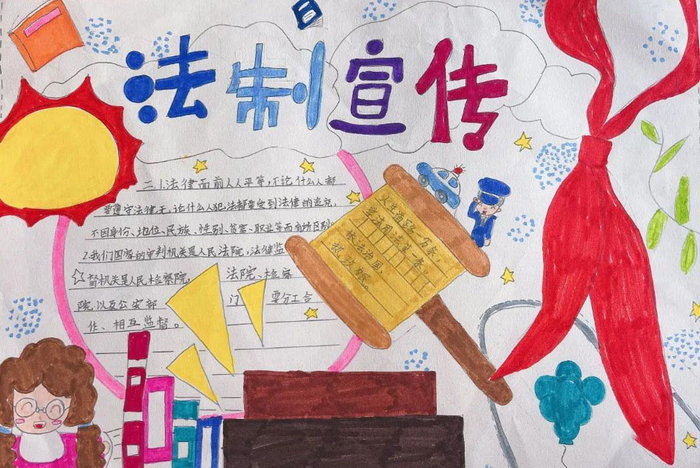 法制宣传
二1.法律面前人人平等,不论什么人都
要遵守法律,无论什么人犯法都要受到法律的追究,
不因身份、地位、民族、性别、贫富、职业等而有所区别。
2.我们国家的审判机关是人民法院,法律监
督机关是人民检察院。 法院、检察
院以及公安部门 要分工合
作、相互监督。
依法治国